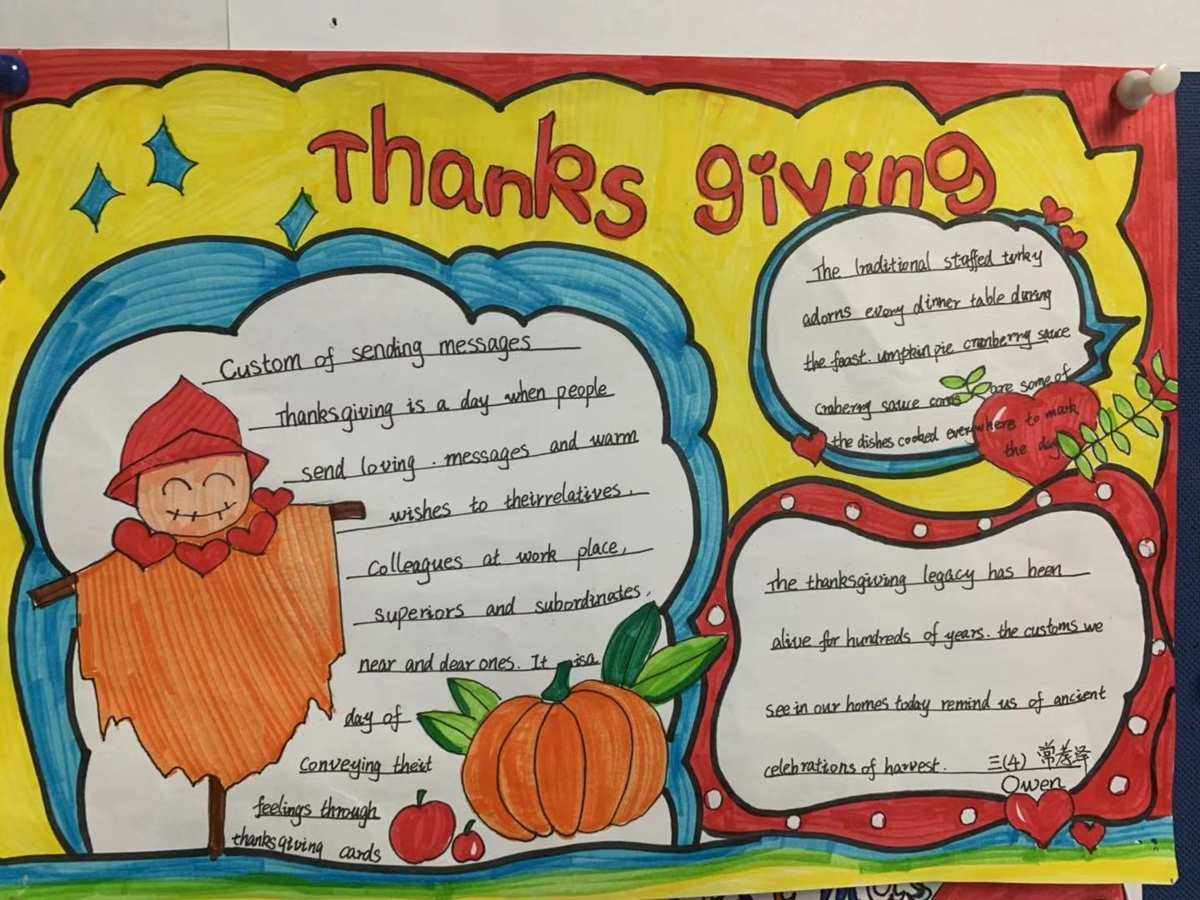 Thanks giving
Custom of sending messages
Thanksgiving is a day when people
send loving . messages and warm
wishes to theirrelatives,
colleagues at work place,
superiors and subordinates,
near and dear ones. It isa
day of
conveying their
feelings through
thanksgiving cards
The traditional staffed turky
adorns every dinner table during
the feast. umpkin pie cranberry sauce
craberry sauce are some of
the dishes cooked everywhere to mark
the day
The thanksgiving legacy has been
alive for hundreds of years. the customs we
see in our homes today remind us of ancient
celebrations of harvest. 三(4) 常泽
Owen